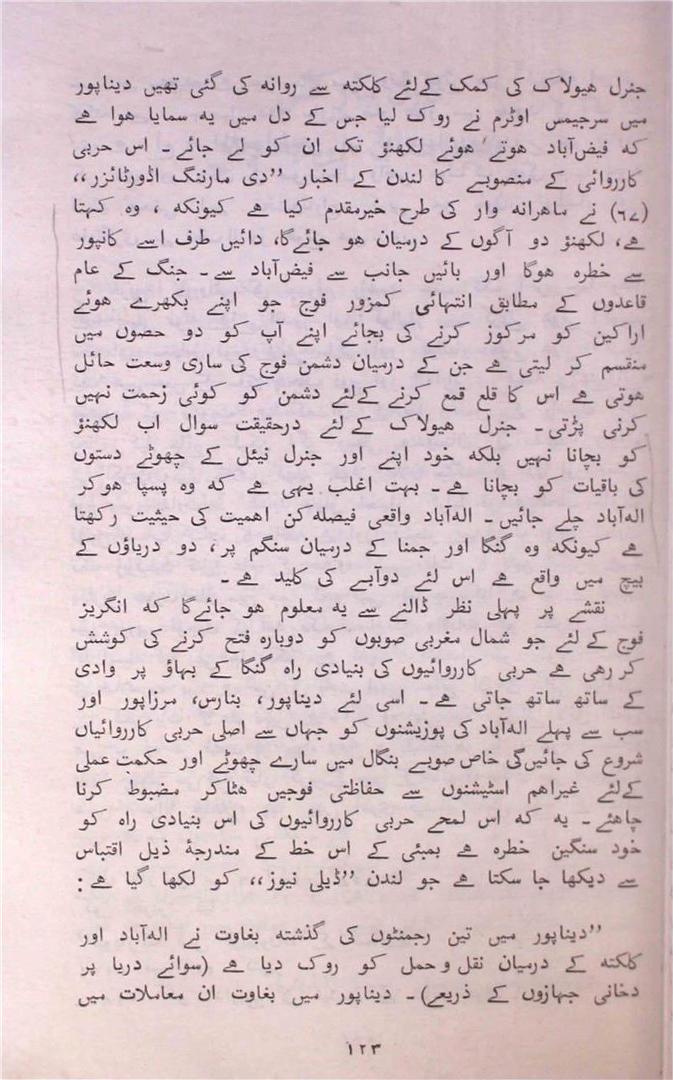 جنرل هیولاک کی کمک کےلئے کلکته سے روانه کی گئی تھیں دیناپور
میں سرجیمس اوٹرم نے روک لیا جس کے دل میں یه سمایا هوا هے
که فیض‌آباد هوتے هوئے لکھنؤ تک ان کو لے جائے۔ اس حربی
کارروائی کے منصوبے کا لندن کے اخبار ”دی مارننگ اڈورٹائزر،،
(٦٧) نے ماهرانه وار کی طرح خیرمقدم کیا هے کیونکه ، وه کہتا
هے، لکھنؤ دو آگوں کے درمیان هو جائےگا، دائیں طرف اسے کانپور
سے خطره هوگا اور بائیں جانب سے فیض‌آباد سے۔ جنگ کے عام
قاعدوں کے مطابق انتہائی کمزور فوج جو اپنے بکھرے هوئے
اراکین کو مرکوز کرنے کی بجائے اپنے آپ کو دو حصوں میں
منقسم کر لیتی هے جن کے درمیان دشمن فوج کی ساری وسعت حائل
هوتی هے اس کا قلع قمع کرنے کےلئے دشمن کو کوئی زحمت نہیں
کرنی پڑتی۔ جنرل هیولاک کے لئے درحقیقت سوال اب لکھنؤ
کو بچانا نہیں بلکه خود اپنے اور جنرل نیئل کے چھوٹے دستوں
کی باقیات کو بچانا هے۔ بہت اغلب یہی هے که وه پسپا هوکر
اله‌آباد چلے جائیں۔ اله‌آباد واقعی فیصله‌کن اهمیت کی حیثیت رکھتا
هے کیونکه وه گنگا اور جمنا کے درمیان سنگم پر، دو دریاؤں کے
بیچ میں واقع هے اس لئے دوآبے کی کلید هے۔
نقشے پر پہلی نظر ڈالنے سے یه معلوم هو جائےگا که انگریز
فوج کے لئے جو شمال مغربی صوبوں کو دوباره فتح کرنے کی کوشش
کر رهی هے حربی کارروائیوں کی بنیادی راه گنگا کے بہاؤ پر وادی
کے ساتھ ساتھ جاتی هے۔ اسی لئے دیناپور، بنارس، مرزاپور اور
سب سے پہلے اله‌آباد کی پوزیشنوں کو جہاں سے اصلی حربی کارروائیاں
شروع کی جائیں‌گی خاص صوبے بنگال میں سارے چھوٹے اور حکمت عملی
کےلئے غیراهم اسٹیشنوں سے حفاظتی فوجیں هٹاکر مضبوط کرنا
چاهئے۔ یه که اس لمحے حربی کارروائیوں کی اس بنیادی راه کو
خود سنگین خطره هے بمبئی کے اس خط کے مندرجۂ ذیل اقتباس
سے دیکھا جا سکتا هے جو لندن ”ڈیلی نیوز،، کو لکھا گیا هے:
”دیناپور میں تین رجمنٹوں کی گذشته بغاوت نے اله‌آباد اور
کلکته کے درمیان نقل و حمل کو روک دیا هے (سوائے دریا پر
دخانی جہازوں کے ذریعے)۔ دیناپور میں بغاوت ان معاملات میں
١٢٣